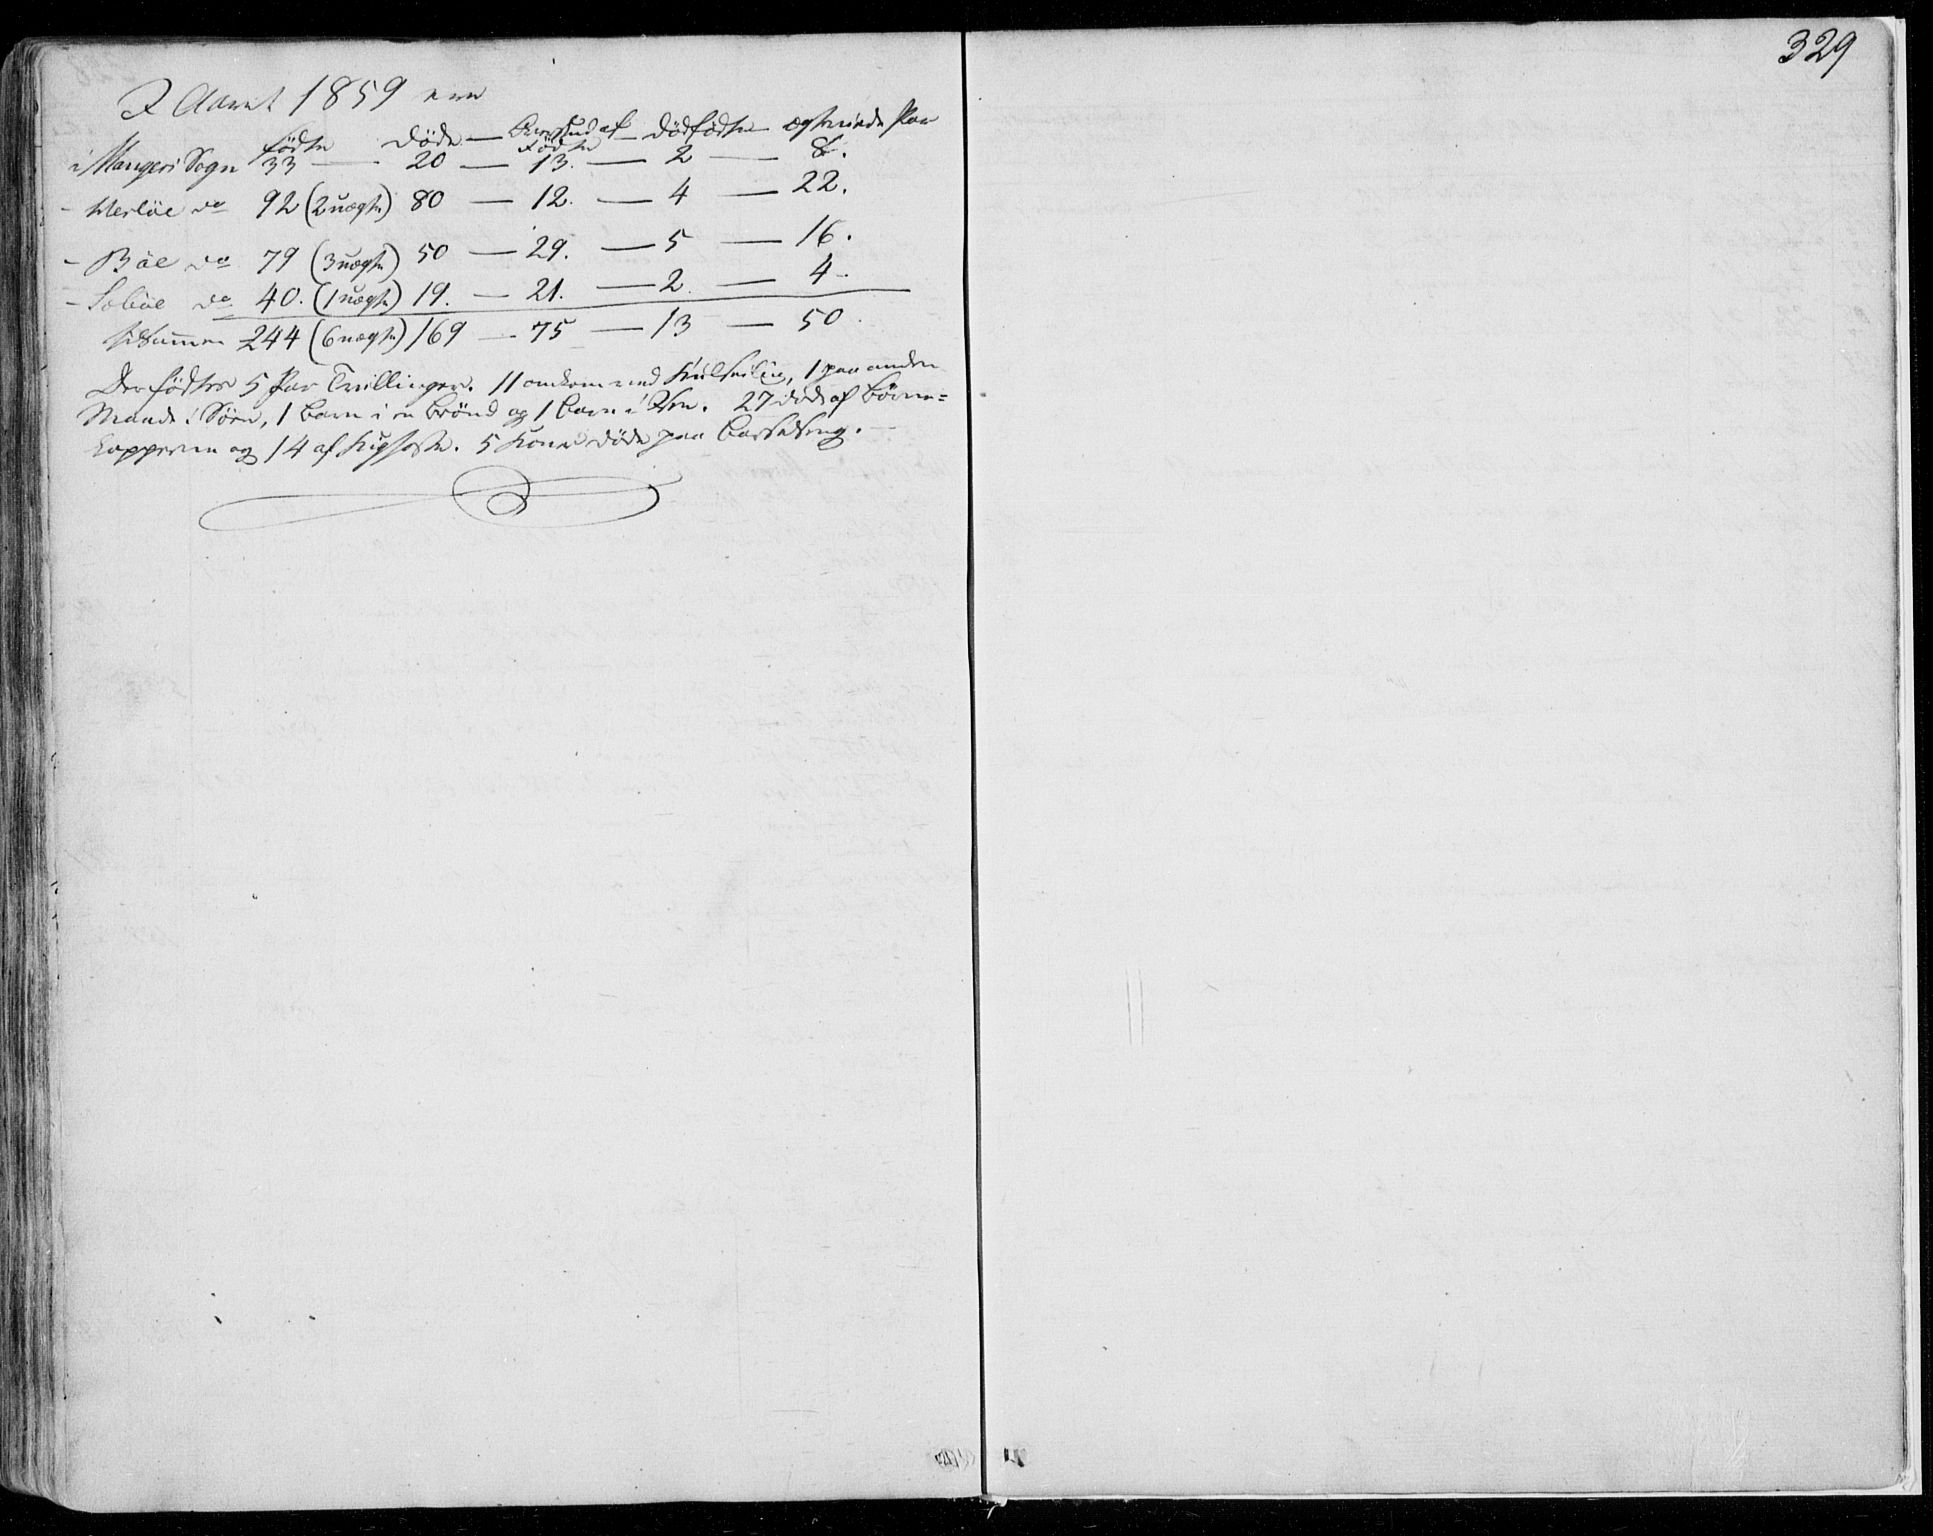 329
I Aaret 1859 ere
fødte Døde — Overskud af — dødfødte — ægteviede Par
Fødte
i Mangers Sogn 33 — 20 — 13. — 2 — 8.
- Herløe do 92 (2 uægte) 80 — 12. — 4 — 22.
- Bøe do 79 (3 uægte) 50 — 29. — 5 — 16.
- Sæbøe do 40. (1 uægte) 19. — 21. — 2. — 4.
Summen 244 (6 uægte) 169 — 75 — 13 — 50.
Der fødtes 5 Par Tvillinger. 11 omkom ved Kulseilin, 1 paa anden
Maade i Søen, 1 Barn i en Brønd og 1 Barn i. 27 døde af Børne=
kopperne og 14 af Kighoste. 5 Koner døde paa Barselseng.